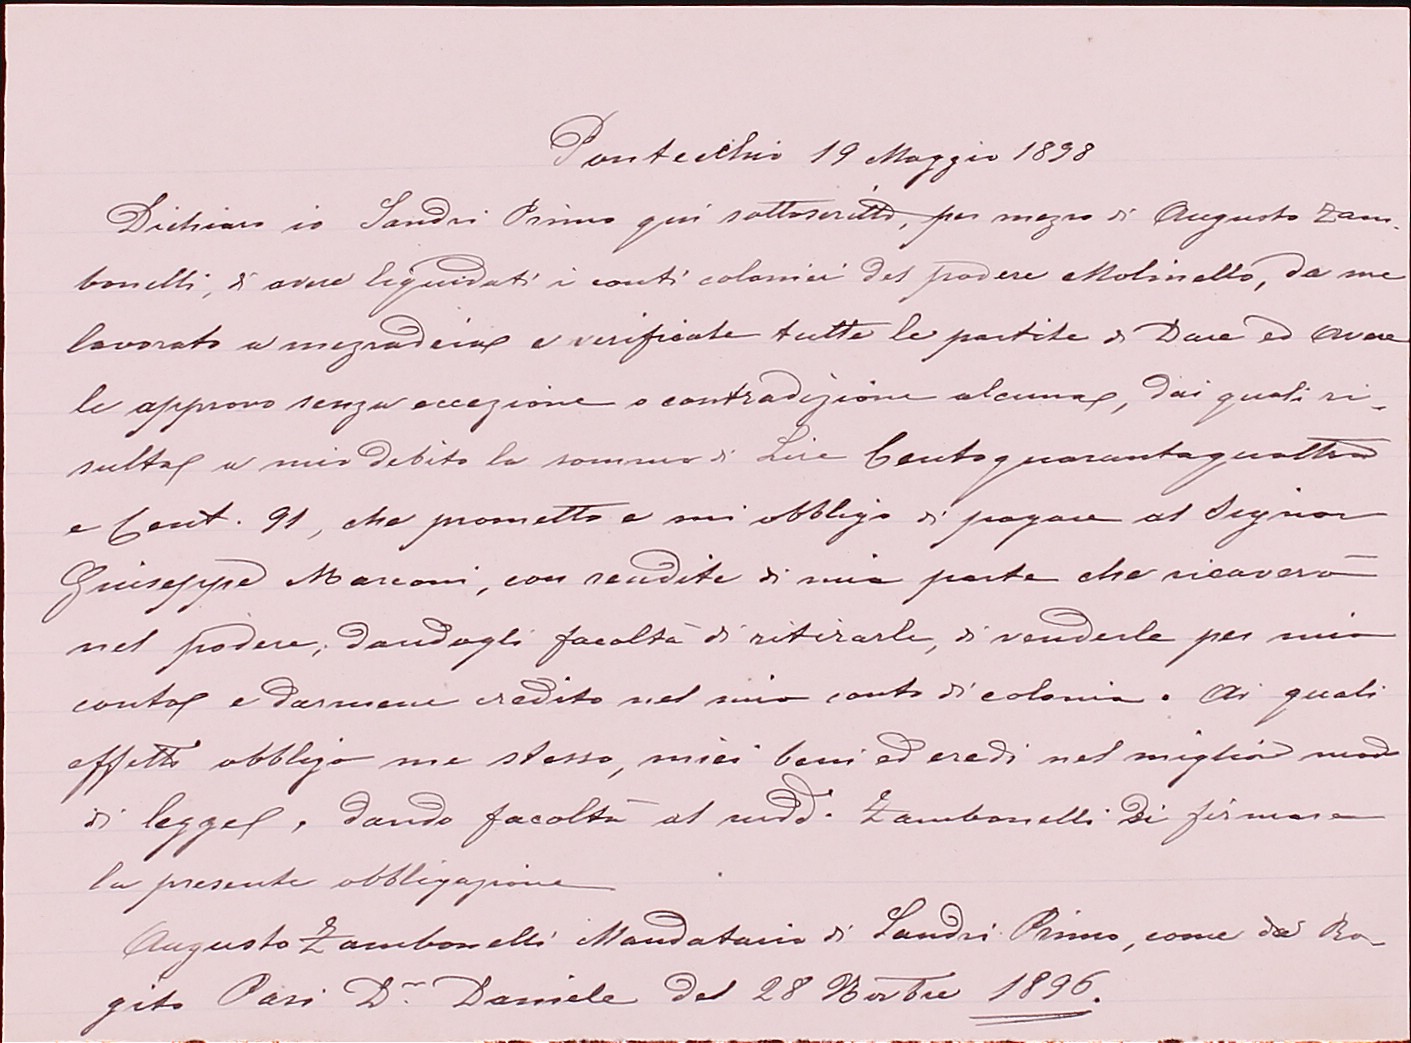 Pontecchio 19 Maggio 1898
Dichiaro io Sandri Primo qui sottoscritto, per mezzo di Augusto Zam-
bonelli, di avere liquidati i conti colonici del podere Molinello, da me
lavorato a mezzadria e verificate tutte le partite di Dare ed Avere
le approvo senza eccezione o contradizione alcuna, dai quali ri-
sulta a mio debito la somma di Lire Centoquarantaquattro
e Cent. 91, che prometto e mi obbligo di pagare al Signor
Giuseppe Marconi, con rendite di mia parte che ricaverò
nel podere, dandogli facoltà di ritirarle, di venderle per mio
conto e darmene credito nel mio conto di colonia. Ai quali
effetti obbligo me stesso, miei beni ed eredi nel miglior modo
di legge, dando facoltà al sudd. Zambonelli Di firmare
la presente obbligazione
Augusto Zambonelli Mandatario di Sandri Primo, come da Ro-
gito Pasi Dr. Daniele del 28 1896.